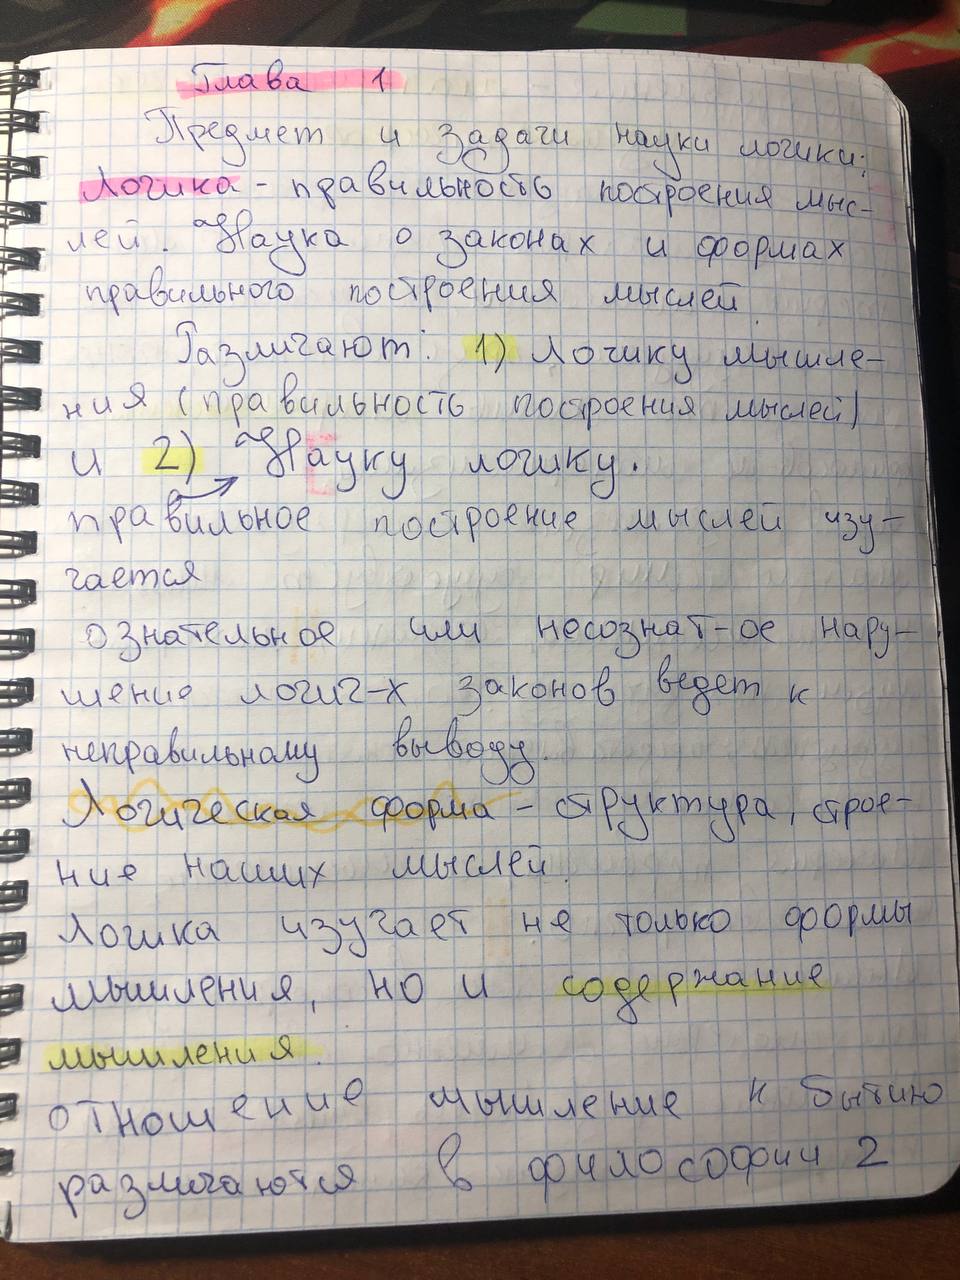 Глава 1
Предмет и задачи науки логики:
Логика - правильность построения мыс-
лей. Наука о законах и формах
правильного построения мыслей.
Различают: 1) Логику мышле-
ния (правильность построения мыслей)
и 2) Науку логику.
правильное построение мыслей изу-
чается
ознательное или несознат-ое нару-
шение логич-х законов ведет к
неправильному выводу.
Логическая форма - структура, строе-
ние наших мыслей.
Логика изучает не только формы
мышления, но и содержание
мышления.
отношение мышление к бытию
различаются в философии 2